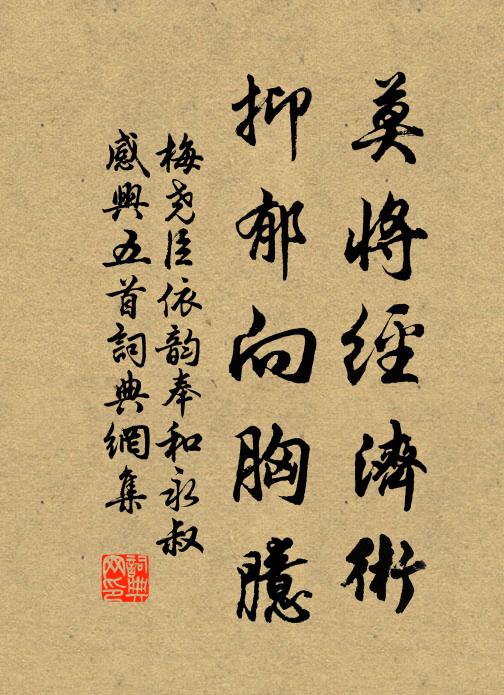 莫將經濟術
抑郁向胸臆
梅尧臣依韵奉和永叔
感興五首詞典網集
詞典
网印